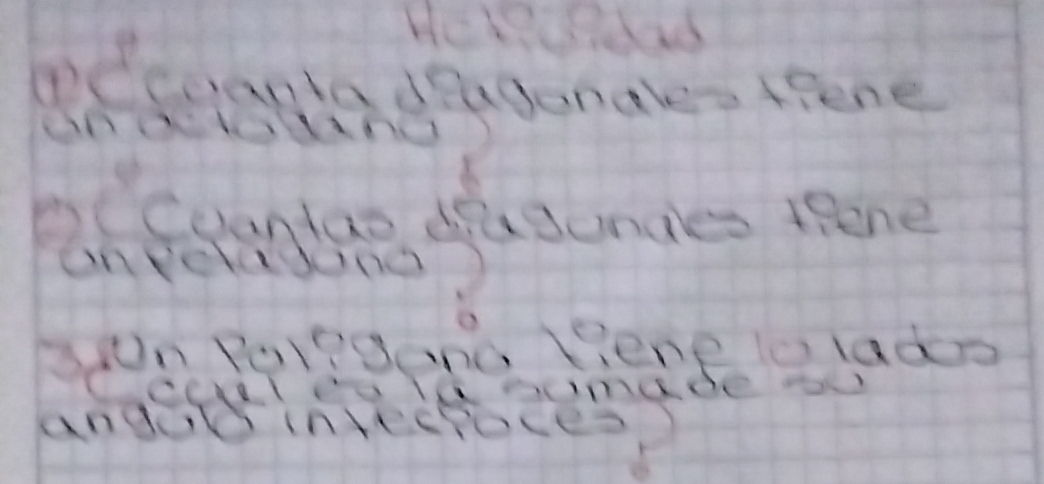 Actividad
1) ¿cuanta diagonales tiene
un octogano?
2) ¿Cuantas diagonales tiene
un petagono?
3) Un Poligono tiene 10 lados
¿cual es la suma de su
angulo interiores?